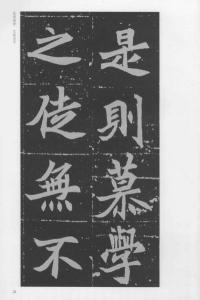 是則慕學
之徒無不